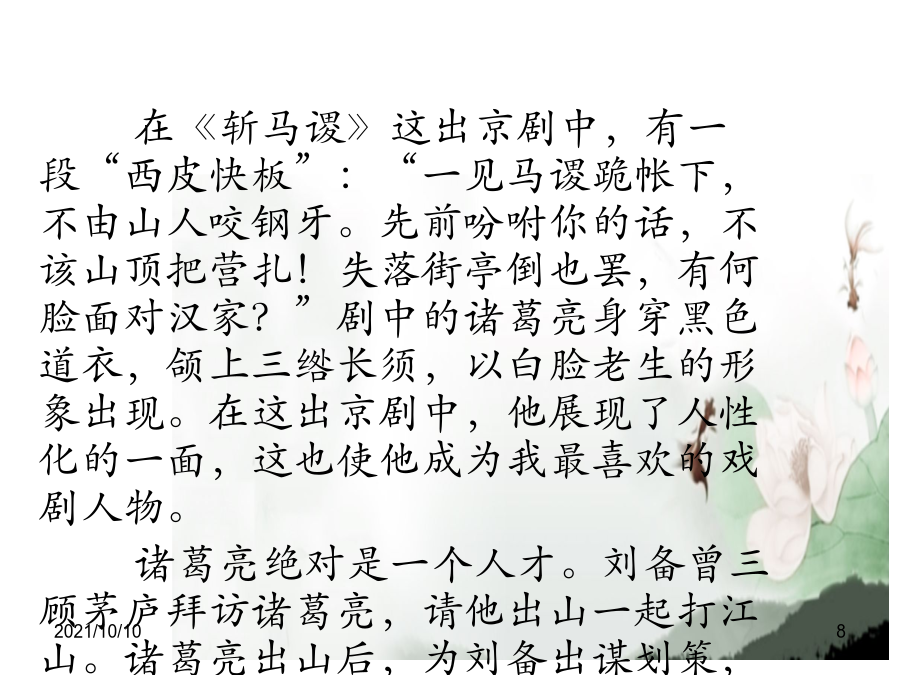 在《斩马谡》这出京剧中，有一
段“西皮快板”：“一见马谡跪帐下，
不由山人咬钢牙。先前吩咐你的话，不
该山顶把营扎！失落街亭倒也罢，有何
脸面对汉家？”剧中的诸葛亮身穿黑色
道衣，颌上三绺长须，以白脸老生的形
象出现。在这出京剧中，他展现了人性
化的一面，这也使他成为我最喜欢的戏
剧人物。
诸葛亮绝对是一个人才。刘备曾三
顾茅庐拜访诸葛亮，请他出山一起打江
山。诸葛亮出山后，为刘备出谋划策，
2021/10/10
8